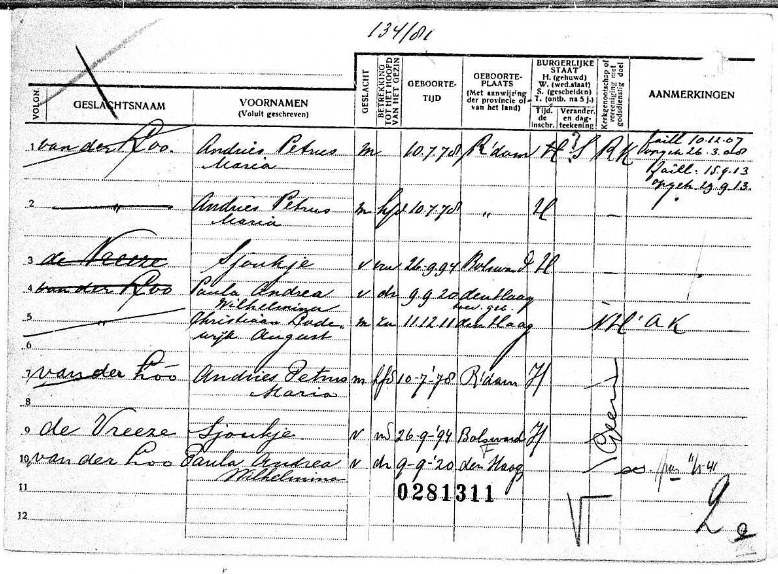 134/81
VOLGN. GESLACHTSNAAM VOORNAMEN (Voluit geschreven) GESLACHT BETREKKING TOT HET HOOFD VAN HET GEZIN GEBOORTE-TIJD GEBOORTE-PLAATS (Met aanwijzing der provincie of van het land) BURGERLIJKE STAAT H. (gehuwd) W. (wed. staat) S. (gescheiden) T. (ontb. na 5 j.) Tijd. de inschr. Verander. en dag-teekening Kerkgenootschap of vereeniging met godsdienstig doel AANMERKINGEN
1 van der Loo. Andries Petrus m 10.7.78 R'dam H ? S RK faill 10.12.07
Maria opgeh 26.3.08
faill. 15.9.13
opgeh. 29.9.13.
2 " Andries Petrus m hfd 10.7.78 " H
Maria
3 de Vreeze Sjoukje v vr 26.9.94 Bolsward H
4 van der Loo Paula Andrea v dr 9.9.20 den Haag
Wilhelmina
5 " Christiaan Lode- m zn 11.12.11 den Haag NH' A K
wijk August
6
7 van der Loo Andries Petrus m hfd 10-7-'78 R'dam H
Maria
8
Geen
9 de Vreeze Sjoukje v 26-9-'94 Bolsward H
10 van der Loo Paula Andrea v dr 9-9-'20 den Haag
Wilhelmina
11 0281311
12 2